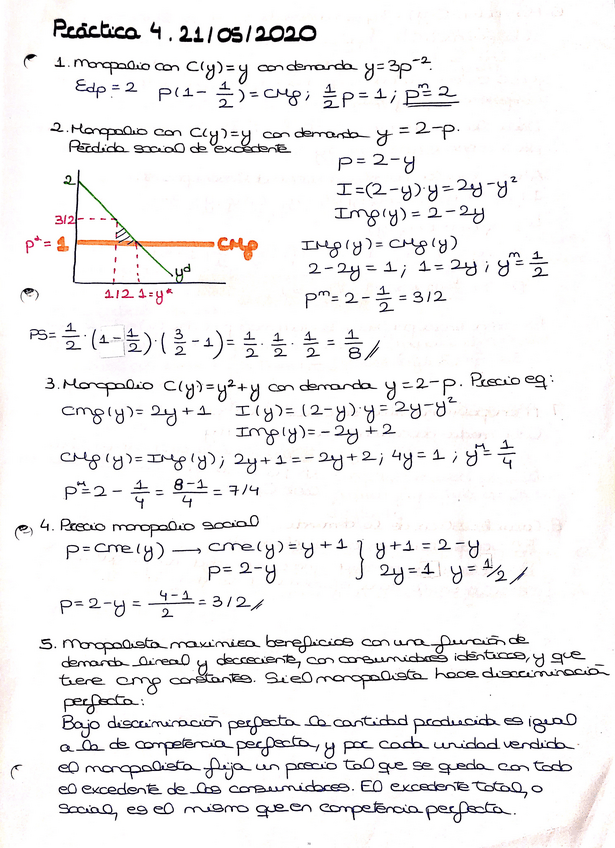 Práctica 4. 21/05/2020
1. Monopolio con C(y)=y con demanda y=3p⁻².
Edp=2 p(1-1/2)=CMg; 1/2 p=1; pᵐ=2
2. Monopolio con C(y)=y con demanda y=2-p.
Pérdida social de excedente
p=2-y
I=(2-y)·y=2y-y²
Img(y)=2-2y
2
3/2
p*=1
CMg
yᵈ
1/2 1=y*
IMg(y)=CMg(y)
2-2y=1; 1=2y; yᵐ=1/2
pᵐ=2-1/2=3/2
PS=1/2·(1-1/2)·(3/2-1)=1/2·1/2·1/2=1/8//
3. Monopolio C(y)=y²+y con demanda y=2-p. Precio eq:
Cmg(y)=2y+1 I(y)=(2-y)·y=2y-y²
Img(y)=-2y+2
CMg(y)=IMg(y); 2y+1=-2y+2; 4y=1; yᴹ=1/4
pᴹ=2-1/4=8-1/4=7/4
4. Precio monopolio social
p=Cme(y) → cme(y)=y+1 } y+1=2-y
p=2-y 2y=1 y=1/2//
p=2-y=4-1/2=3/2//
5. Monopolista maximiza beneficios con una función de
demanda lineal y decreciente, con consumidores idénticos, y que
tiene cmg constantes. Si el monopolista hace discriminación
perfecta:
Bajo discriminación perfecta la cantidad producida es igual
a la de competencia perfecta, y por cada unidad vendida
el monopolista fija un precio tal que se queda con todo
el excedente de los consumidores. El excedente total, o
social, es el mismo que en competencia perfecta.